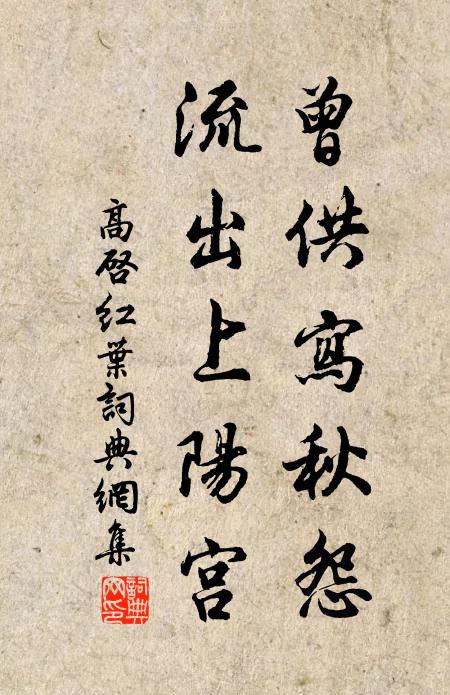 曾供寫秋怨
流出上陽宮
高啓紅葉詞典網集
詞典網印